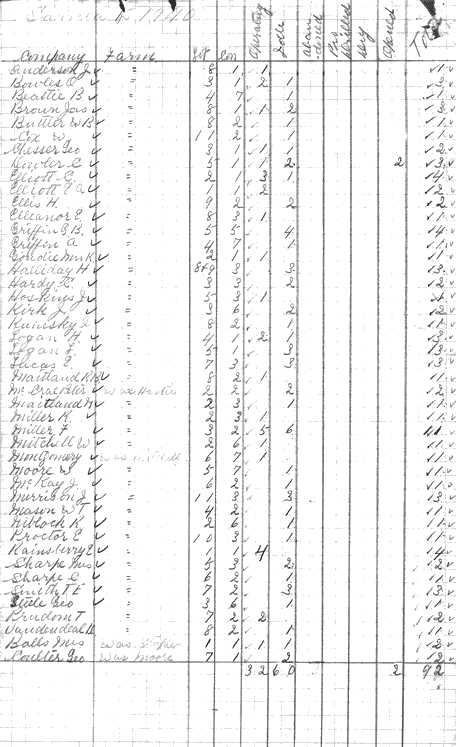 1940
Company Farm Lot Con Operating Idle Aban-doned Gas Drilled Dry Opened Total
Anderson J " 8 1 1 1
Bowles C " 3 1 2 1 3
Beattie B " 4 7 1 1
Brown Jas " 8 1 1 2 3
Butler W B " 8 2 1 1
Cox W. " 11 2 1 1
Geo " 3 1 1 1 2
Fowler C " 5 1 1 2 2 3
Elliott C. " 2 1 3 1 4
Elliott E A " 1 1 2 2
Ellis H. " 9 2 2 2
Elleanor E. " 8 3 1 1
Griffin C B. " 5 5 4 4
Griffin A " 4 7 1 1
Mrs K " 2 1 1 1
Halliday H " 8+9 3 3 3
Hardy " 3 3 2 2
Hoskins J. " 5 3 1 1
Kirk J. " 3 6 2 2
" 8 2 1 1
Logan H. " 4 1 2 1 3
Logan " 5 1 3 3
Lucas E " 7 3 3 3
Maitland R " 8 2 1 1
McCrae was 2 2 2 2
Maitland " 2 3 1 1
Miller K. " 2 3 1 1
Miller F. " 3 2 5 6 11
Mitchell W " 2 6 1 1
Montgomery was 6 7 1 1
Moore W " 5 7 1 1
McKay J. " 6 2 1 1
Merrison J " 11 3 3 3
Mason W T " 4 2 1 1
Niblock R " 2 6 1 1
Proctor E " 10 3 1 1
Rainsberry E " 1 1 4 4
Sharpe Mrs " 5 3 2 2
Sharpe C " 6 2 1 1
Smith T E " 7 2 3 3
Steele Geo " 3 6 1 1
Prudom T " 7 2 2 2
Vandendeal " 8 2 1 1
Balls Mrs was 1 1 1 1 2
Coulter Geo was Moore 7 1 2 2
32 60 2 92